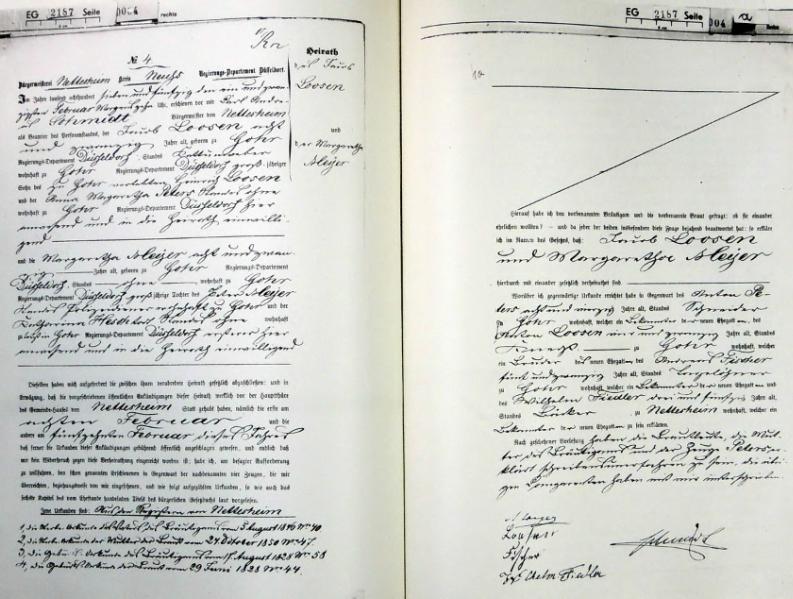 EG 2187 Seite 0004 rechts
№ 4.
Heirath
Jacob
Loosen
und
der Margaretha
Meijer
Bürgermeisterei Nettesheim Kreis Neuß Regierungs-Departement Düsseldorf.
Im Jahre tausend achthundert sieben und fünfzig den ein und zwan-
zigsten Februar Uhr, erschienen vor mir Carl Andre-
as Schmidt Bürgermeister von Nettesheim
als Beamter des Personenstandes, der Jacob Loosen acht
und zwanzig Jahre alt, geboren zu Gohr
Regierungs-Departement Düsseldorf, Standes
wohnhaft zu Gohr Regierungs-Departement Düsseldorf groß-jähriger
Sohn des zu Gohr verlebten Heinrich Loosen
und der Anna Margaretha Peters Standes ohne
wohnhaft zu Gohr Regierungs-Departement Düsseldorf hier
anwesend und in die Heirath einwilli-
gend
und die Margaretha Meijer acht und zwan-
zig Jahre alt, geboren zu Gohr Regierungs-Departement
Düsseldorf, Standes ohne wohnhaft zu Gohr
Regierungs-Departement Düsseldorf großjährige Tochter des Peter Meijer
Standes wohnhaft zu Gohr und der
Katharina Standes ohne wohnhaft
zu Gohr Regierungs-Departement Düsseldorf hier
anwesend und in die Heirath einwilligend
Dieselben haben mich aufgefordert die zwischen ihnen verabredete Heirath gesetzlich abzuschließen; und in
Erwägung, daß die vorgeschriebenen öffentlichen Ankündigungen dieser Heirath wirklich vor der Hauptthüre
des Gemeinde-Hauses von Nettesheim Statt gehabt haben, nämlich die erste am
achten Februar und die
andere am fünfzehnten Februar dieses Jahres
daß ferner die Urkunden dieser Ankündigungen gebührend öffentlich angeschlagen gewesen, und endlich daß
mir kein Widerspruch gegen diese Versprechung eingereicht worden ist; habe ich, um besagter Aufforderung
zu willfahren, den oben genannten Erschienenen in Gegenwart der nachbenannten vier Zeugen, die mir
überreichten, beziehungsweise von mir eingesehenen, und wie folgt aufgezählten Urkunden, so wie auch das
sechste Kapitel des vom Ehestande handelnden Titels des bürgerlichen Gesetzbuchs laut vorgelesen.
Jene Urkunden sind: Aus den Registern von Nettesheim
1, die Sterbe-Urkunde des Vaters des Bräutigams vom 5 August 1846 № 40
2, die Sterbe-Urkunde der Mutter der Braut vom 24 October 1850 № 47.
3, die Geburts-Urkunde des Bräutigams vom 17. August 1828 № 58
4, die Geburts-Urkunde der Braut vom 29 Juni 1828 № 44.
EG 2187 Seite 004 a
Hierauf habe ich den vorbenannten Bräutigam und die vorbenannte Braut gefragt: ob sie einander
ehelichen wollten? – und da jeder der beiden insbesondere diese Frage bejahend beantwortet hat: so erkläre
ich im Namen des Gesetzes, daß: Jacob Loosen
und Margaretha Meijer
hierdurch mit einander gesetzlich verheirathet sind.
Worüber ich gegenwärtige Urkunde errichtet habe in Gegenwart des Anton Pe-
ters acht und vierzig Jahre alt, Standes Schneider
zu Gohr wohnhaft, welcher ein Bekannter der neuen Ehegatten, des
Anton Loosen ein und zwanzig Jahre alt, Standes
zu Gohr wohnhaft, welcher
ein Bruder des neuen Ehegatten, des Andreas Fischer
fünf und zwanzig Jahre alt, Standes Tagelöhner
zu Gohr wohnhaft, welcher ein Bekannter der neuen Ehegatten und
des Wilhelm Fiedler drei und fünfzig Jahre alt,
Standes Bäcker zu Nettesheim wohnhaft, welcher ein
Bekannter der neuen Ehegatten zu sein erklärten.
Nach geschehener Vorlesung haben die Brautleute, die Mut-
ter des Bräutigams und der Zeuge Peters er-
klärt schreibensunerfahren zu sein, die übri-
gen Comparenten haben mit mir unterschrieben.
Loosen
Fischer
Wilhelm Fiedler
Schmidt